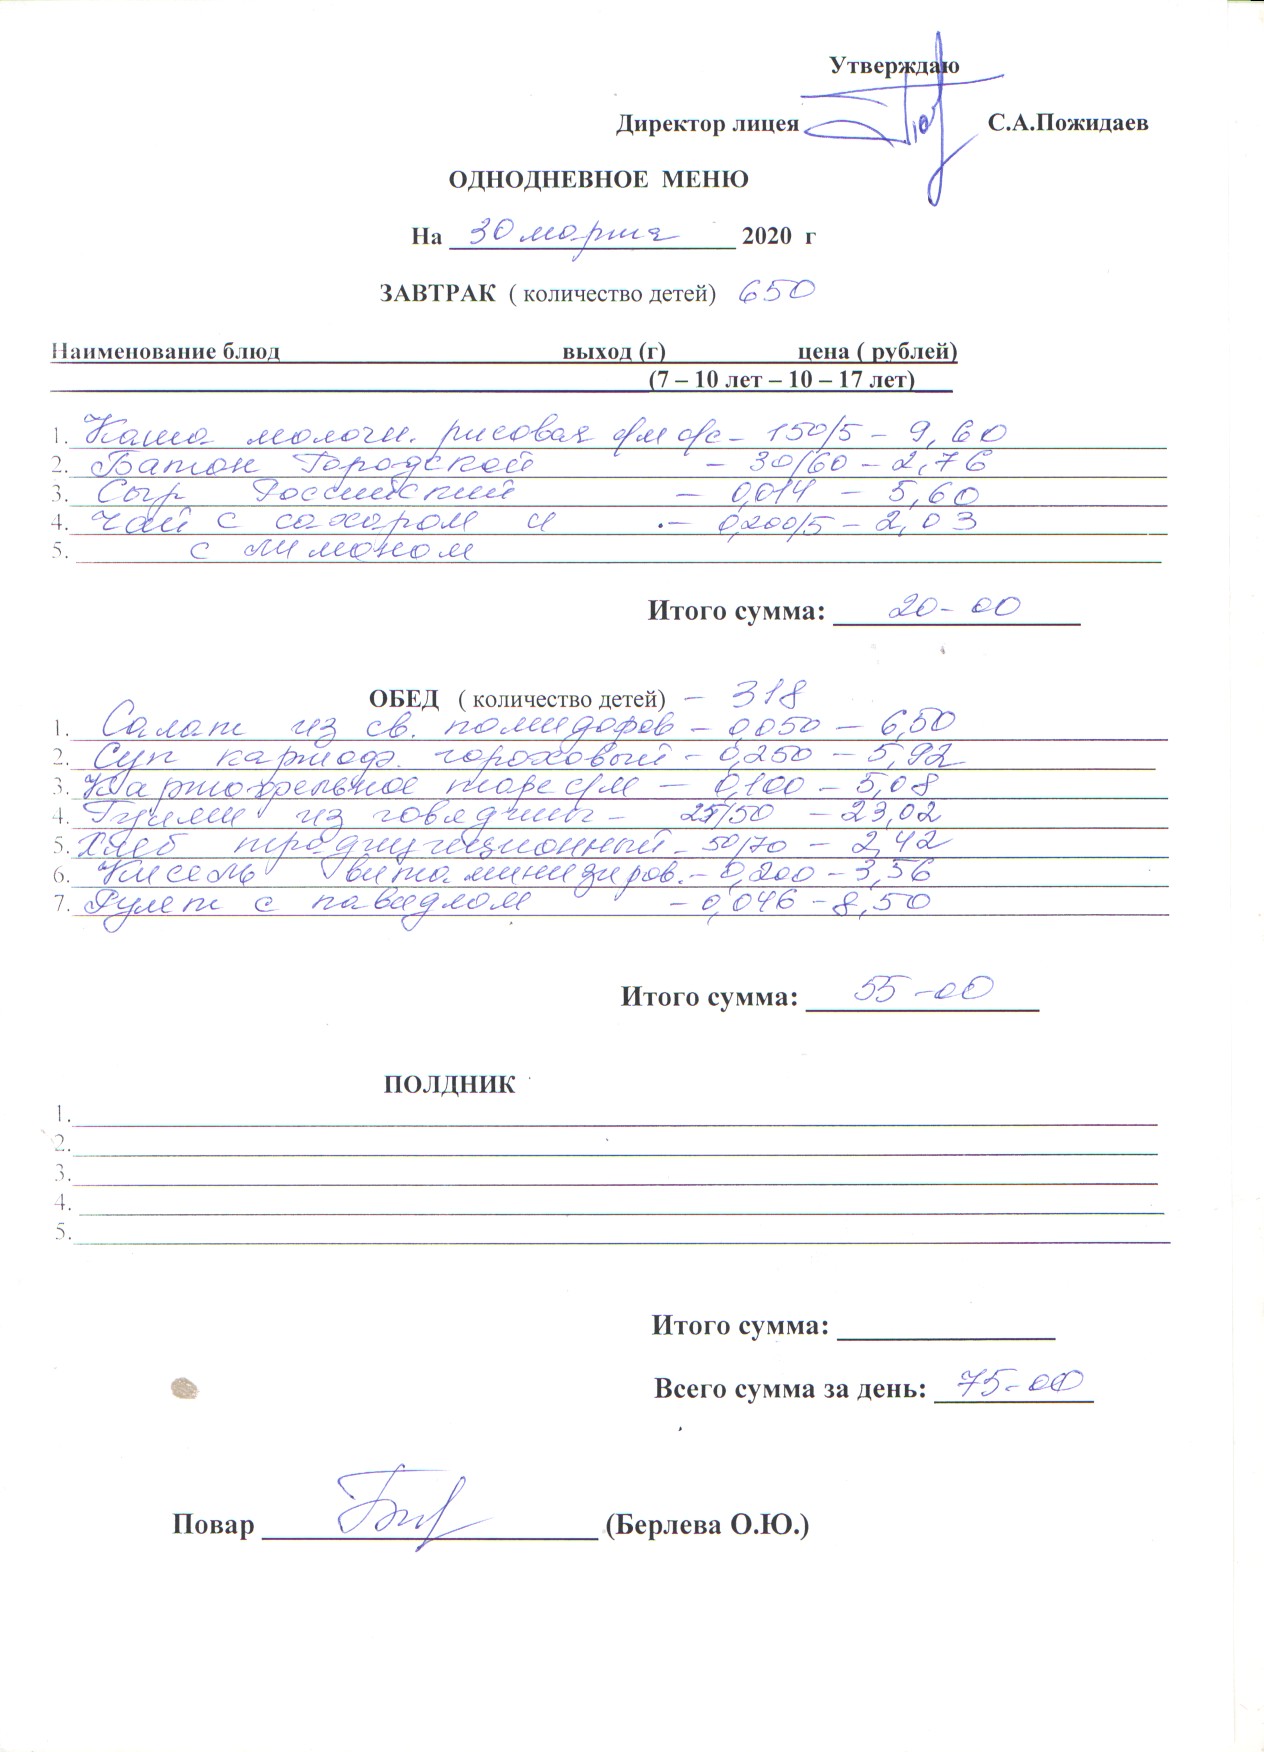 Утверждаю
Директор лицея С.А.Пожидаев
ОДНОДНЕВНОЕ МЕНЮ
На 30 марта 2020 г
ЗАВТРАК ( количество детей) 650
Наименование блюд выход (г) цена ( рублей)
(7 – 10 лет – 10 – 17 лет)
1. Каша молочн. рисовая - 150/5 - 9,60
2. Батон Городской - 30/60 - 2,76
3. Сыр Российский - 0,014 - 5,60
4. Чай с сахаром и - 0,200/5 - 2,03
5. с лимоном
Итого сумма: 20-00
ОБЕД ( количество детей) - 318
1. Салат из св. помидоров - 0,050 - 6,50
2. Суп картоф. гороховый - 0,250 - 5,92
3. Картофельное пюре с/м - 0,100 - 5,08
4. Гуляш из говядины - 25/50 - 23,02
5. Хлеб традиционный - 50/70 - 2,42
6. Кисель витаминизиров. - 0,200 - 3,56
7. Рулет с повидлом - 0,046 - 8,50
Итого сумма: 55-00
ПОЛДНИК
1.
2.
3.
4.
5.
Итого сумма:
Всего сумма за день: 75-00
Повар (Берлева О.Ю.)